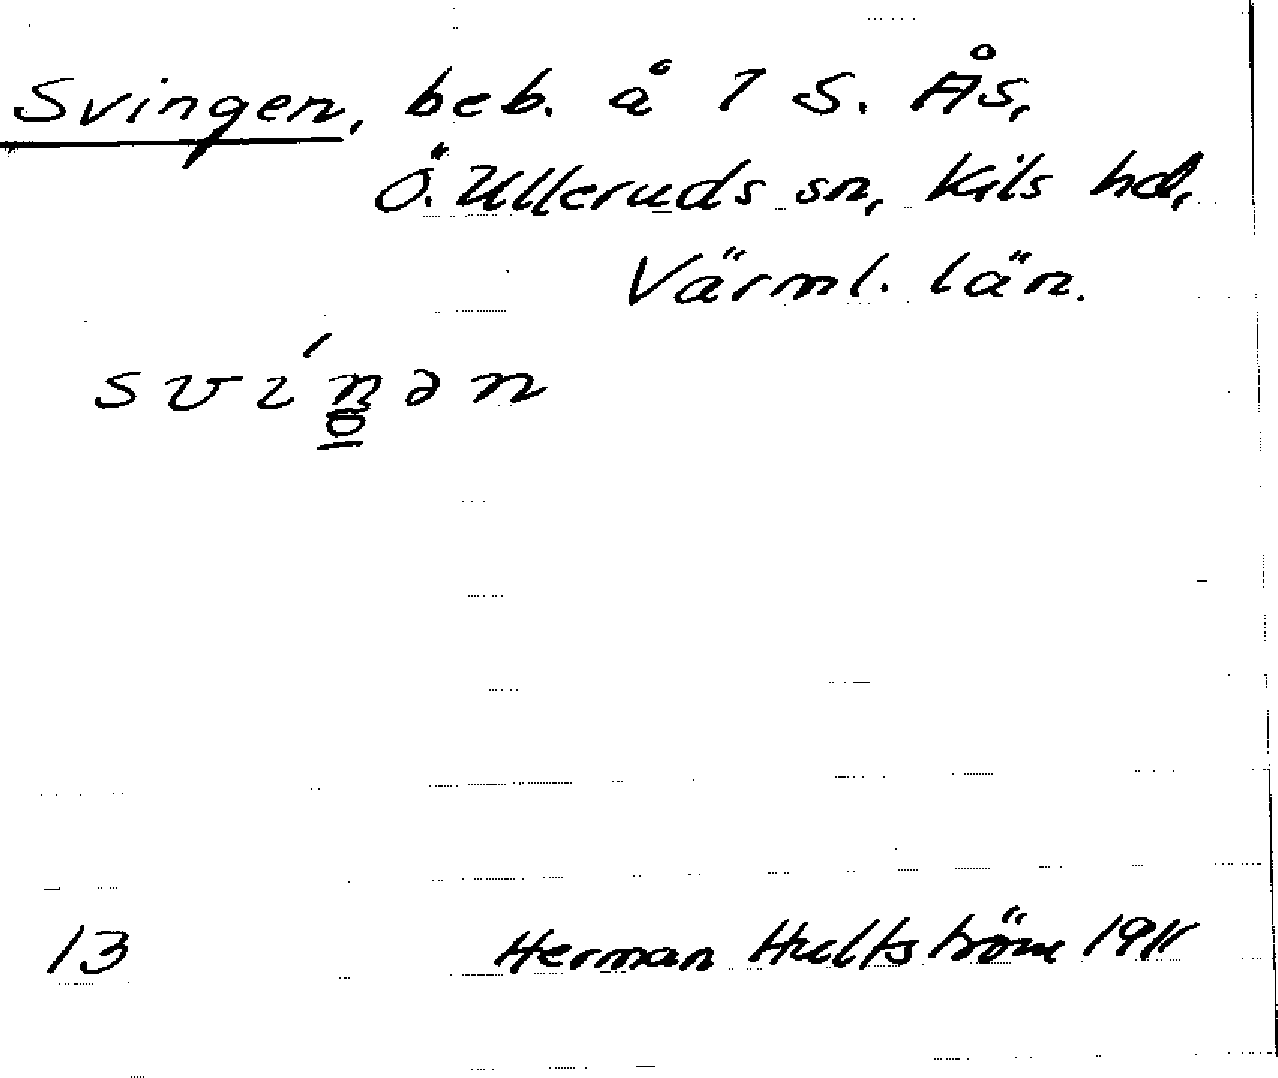 Svingen, beb. å 1 S. Ås,
Ö. Ulleruds sn, Kils hd,
Värml. län.
13 Herman Hultström 1911